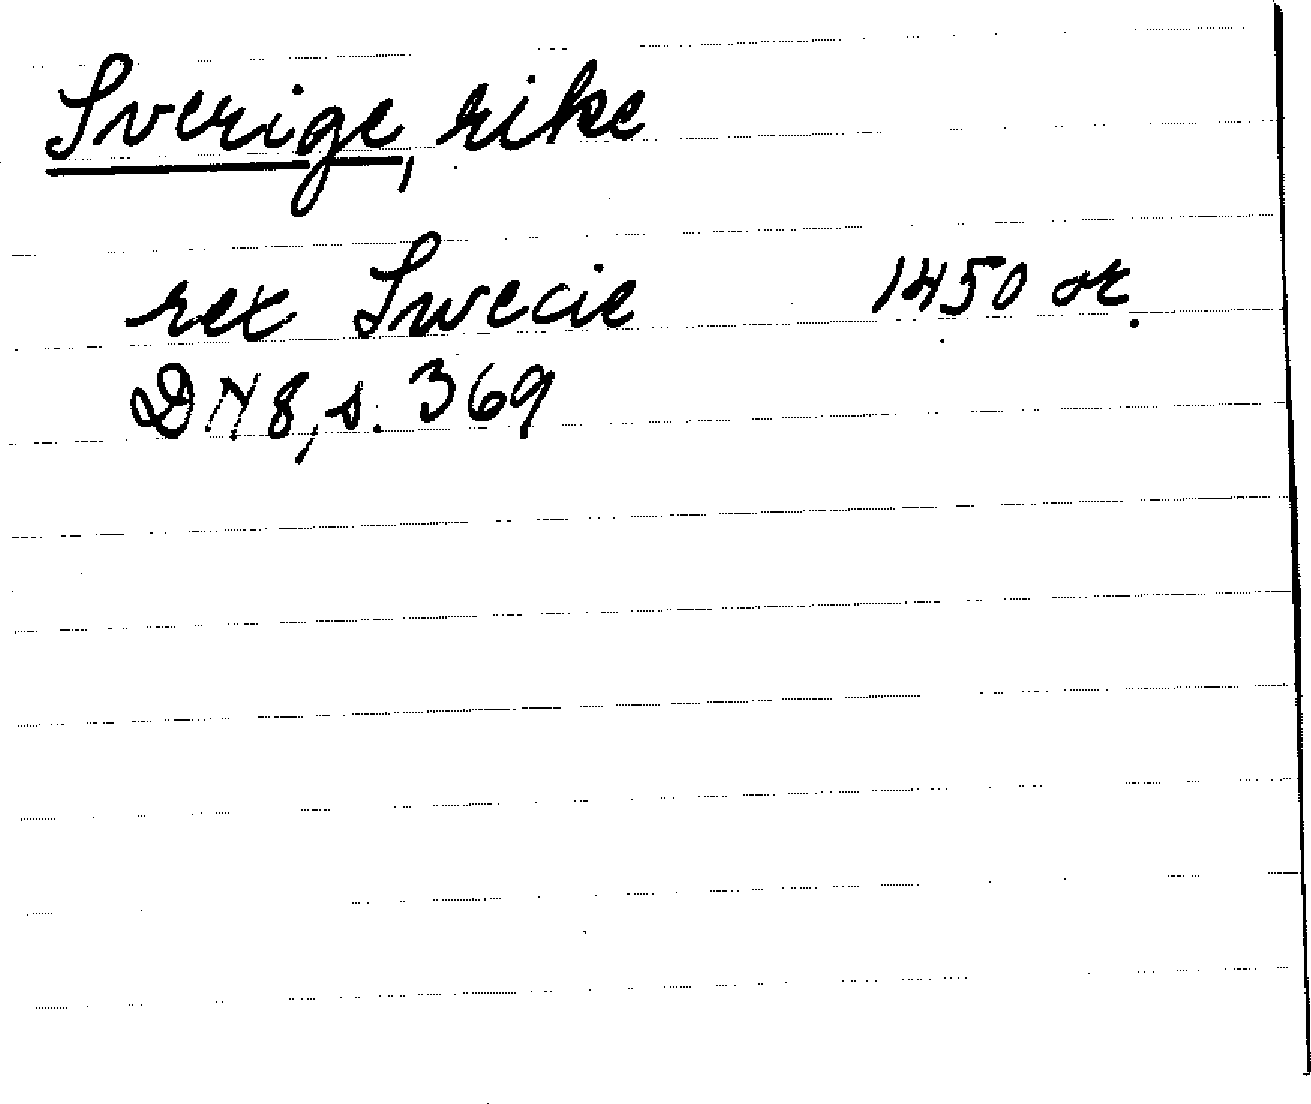 Sverige, rike
rex Swecie 1450 or.
DN 8, s. 369